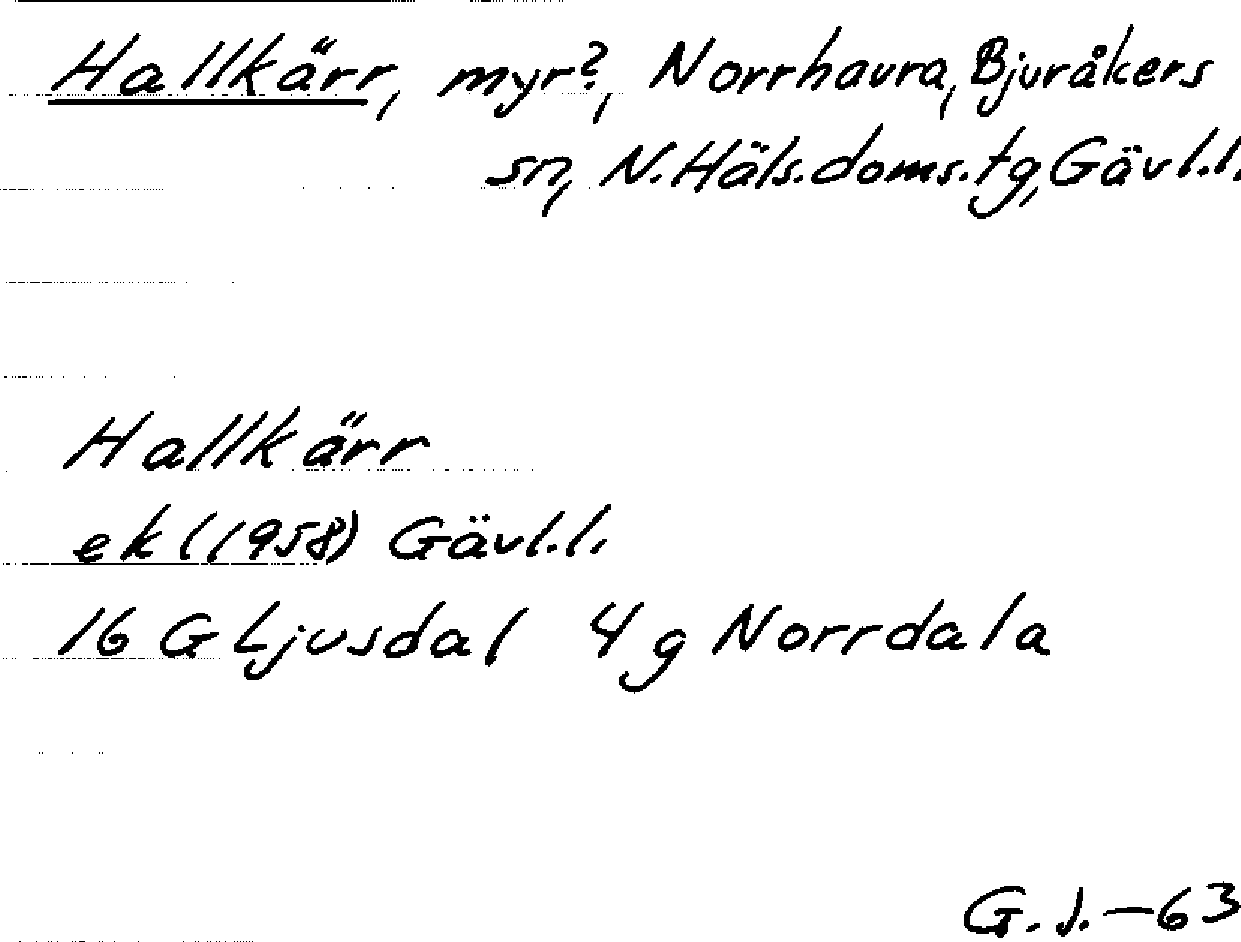 Hallkärr, myr?, Norrhavra, Bjuråkers
sn, N. Häls. doms. tg, Gävl. l.
Hallkärr
ek (1958) Gävl. l.
16 G Ljusdal 4 g Norrdala
G. J. – 63